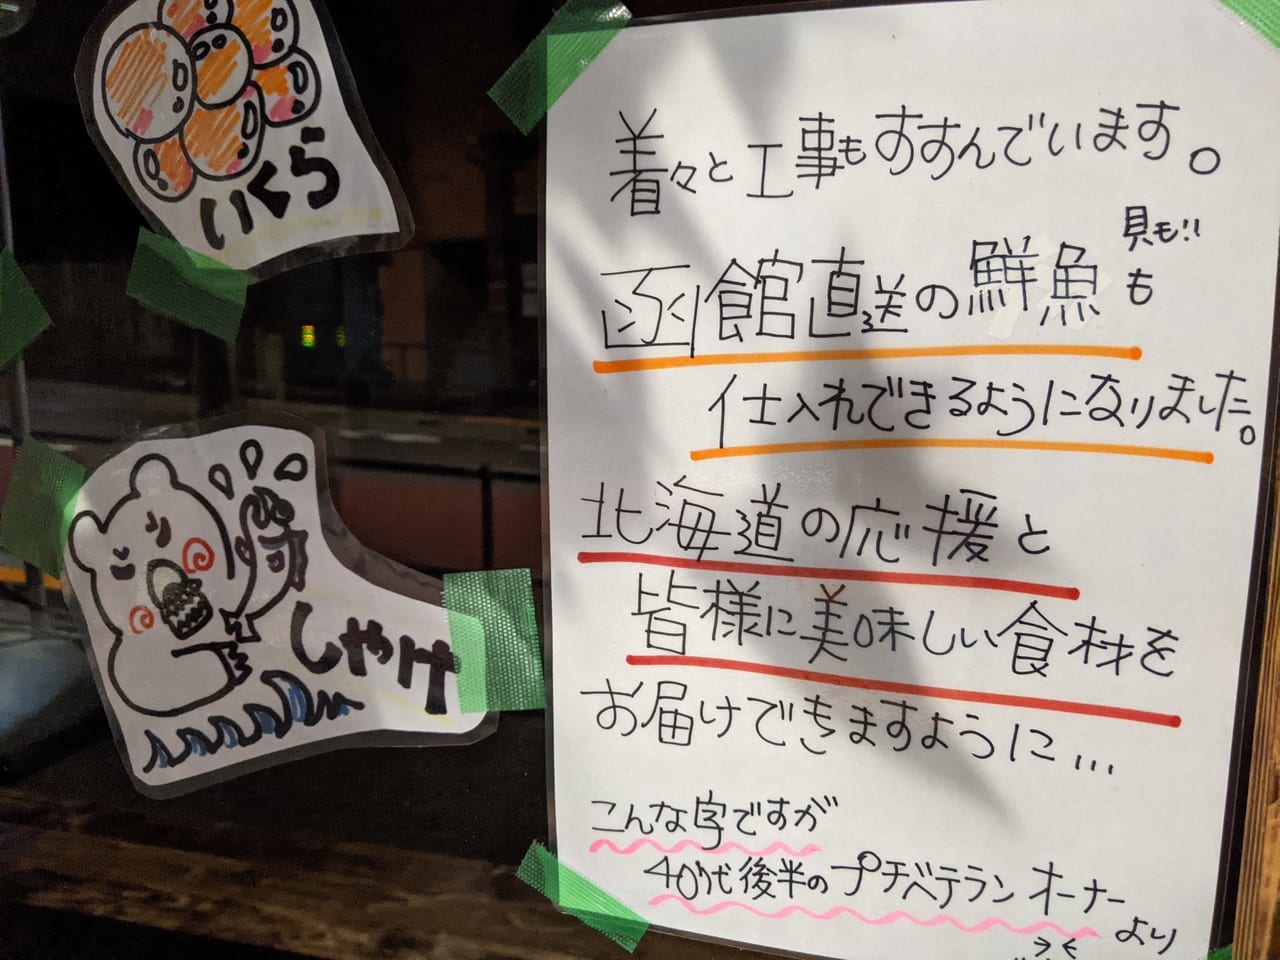 いくら
しゃけ
着々と工事もすすんでいます。
貝も!!
函館直送の鮮魚も
仕入れできるようになりました。
北海道の応援と
皆様に美味しい食材を
お届けできますように...
こんな字ですが
40代後半のプチベテランオーナー
より